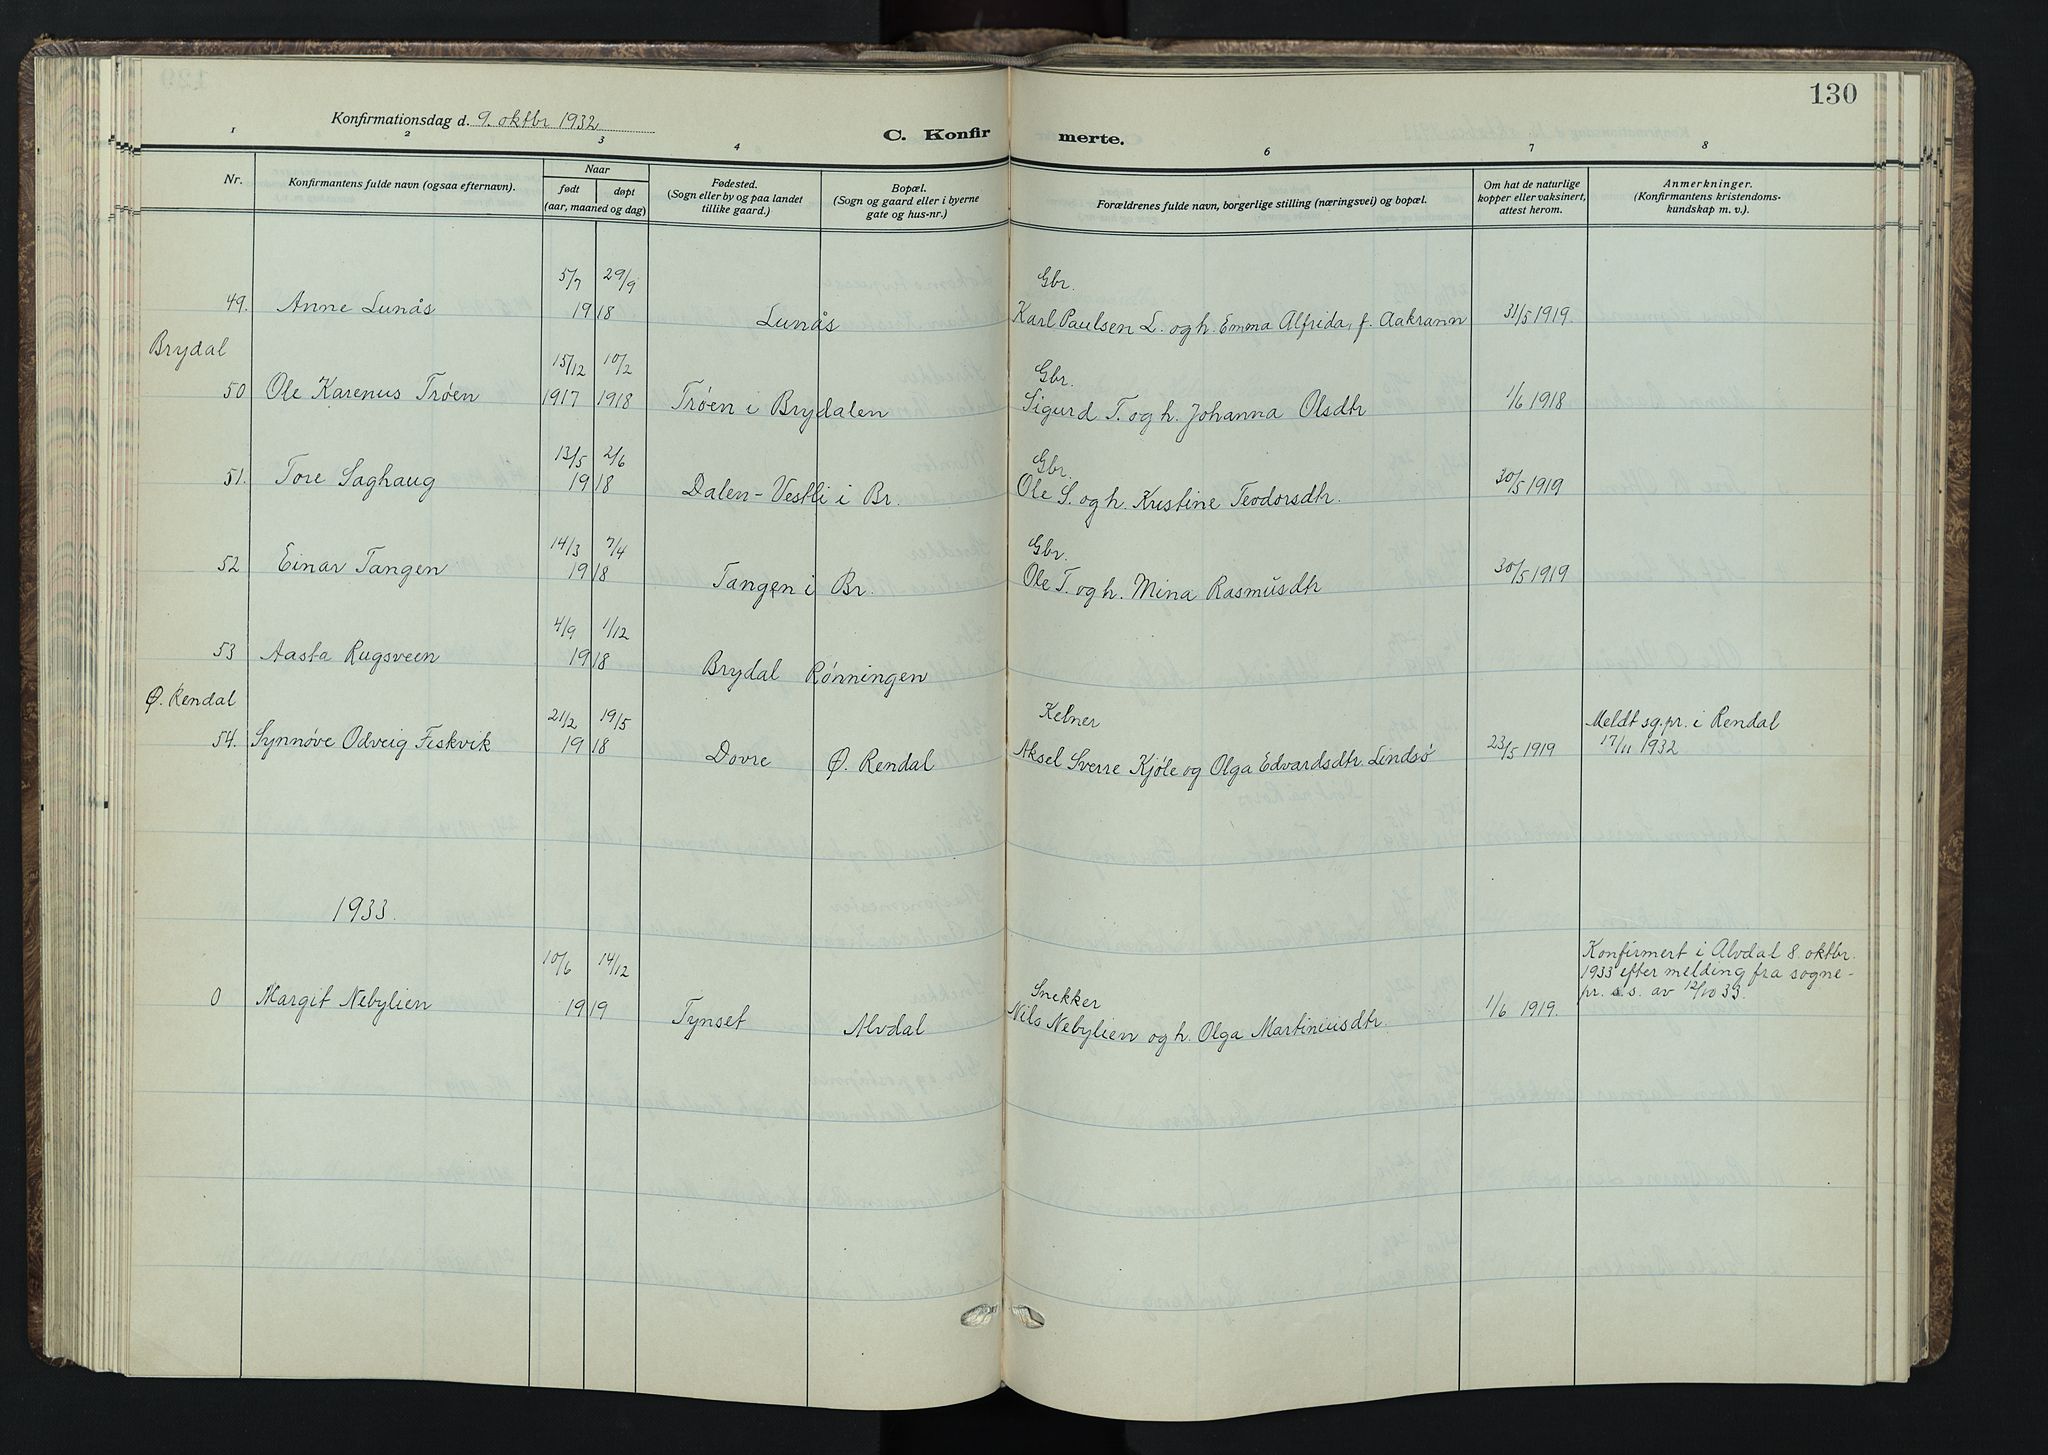 130
Konfirmationsdag d. 9. oktbr 1932
C. Konfirmerte.
1 2 3 4 6 7 8
Nr.
Konfirmantens fulde navn (ogsaa efternavn).
Naar
født døpt
(aar, maaned og dag)
Fødested.
(Sogn eller by og paa landet
tillike gaard.)
Bopæl.
(Sogn og gaard eller i byerne
gate og hus-nr.)
Forældrenes fulde navn, borgerlige stilling (næringsvei) og bopæl.
Om hat de naturlige
kopper eller vaksinert,
attest herom.
Anmerkninger.
(Konfirmantens kristendoms-
kundskap m. v.)
5/7 29/9 Gbr.
49. Anne Lunås 1918 Lunås Karl Paulsen L. og h. Emma Alfrida, f. Aakrann 31/5 1919.
Brydal
15/12 10/2 Gbr.
50 Ole Karenus Trøen 1917 1918 Trøen i Brydalen Sigurd T. og h. Johanna Olsdtr 1/6 1918
13/5 2/6 Gbr.
51. Tore Saghaug 1918 Dalen-Vestli i Br. Ole S. og h. Kristine Teodorsdtr. 30/5 1919
14/3 7/4 Gbr.
52 Einar Tangen 1918 Tangen i Br. Ole T. og h. Mina Rasmusdtr 30/5 1919
4/9 1/12
53 Aasta Rugsveen 1918 Brydal Rønningen
Ø. Rendal
21/2 19/5 Kelner Meldt sg.pr. i Rendal
54. Synnøve Odveig Fiskvik 1918 Dovre Ø. Rendal Aksel Sverre Kjøle og Olga Edvardsdtr. Lindsø 23/5 1919 17/11 1932
1933.
10/6 14/12 Konfirmert i Alvdal 8. oktbr.
1933 efter melding fra sogne-
Snekker pr. s.s. av 12/10 33.
0 Margit Nebylien 1919 Tynset Alvdal Nils Nebylien og h. Olga Martiniusdtr. 1/6 1919.